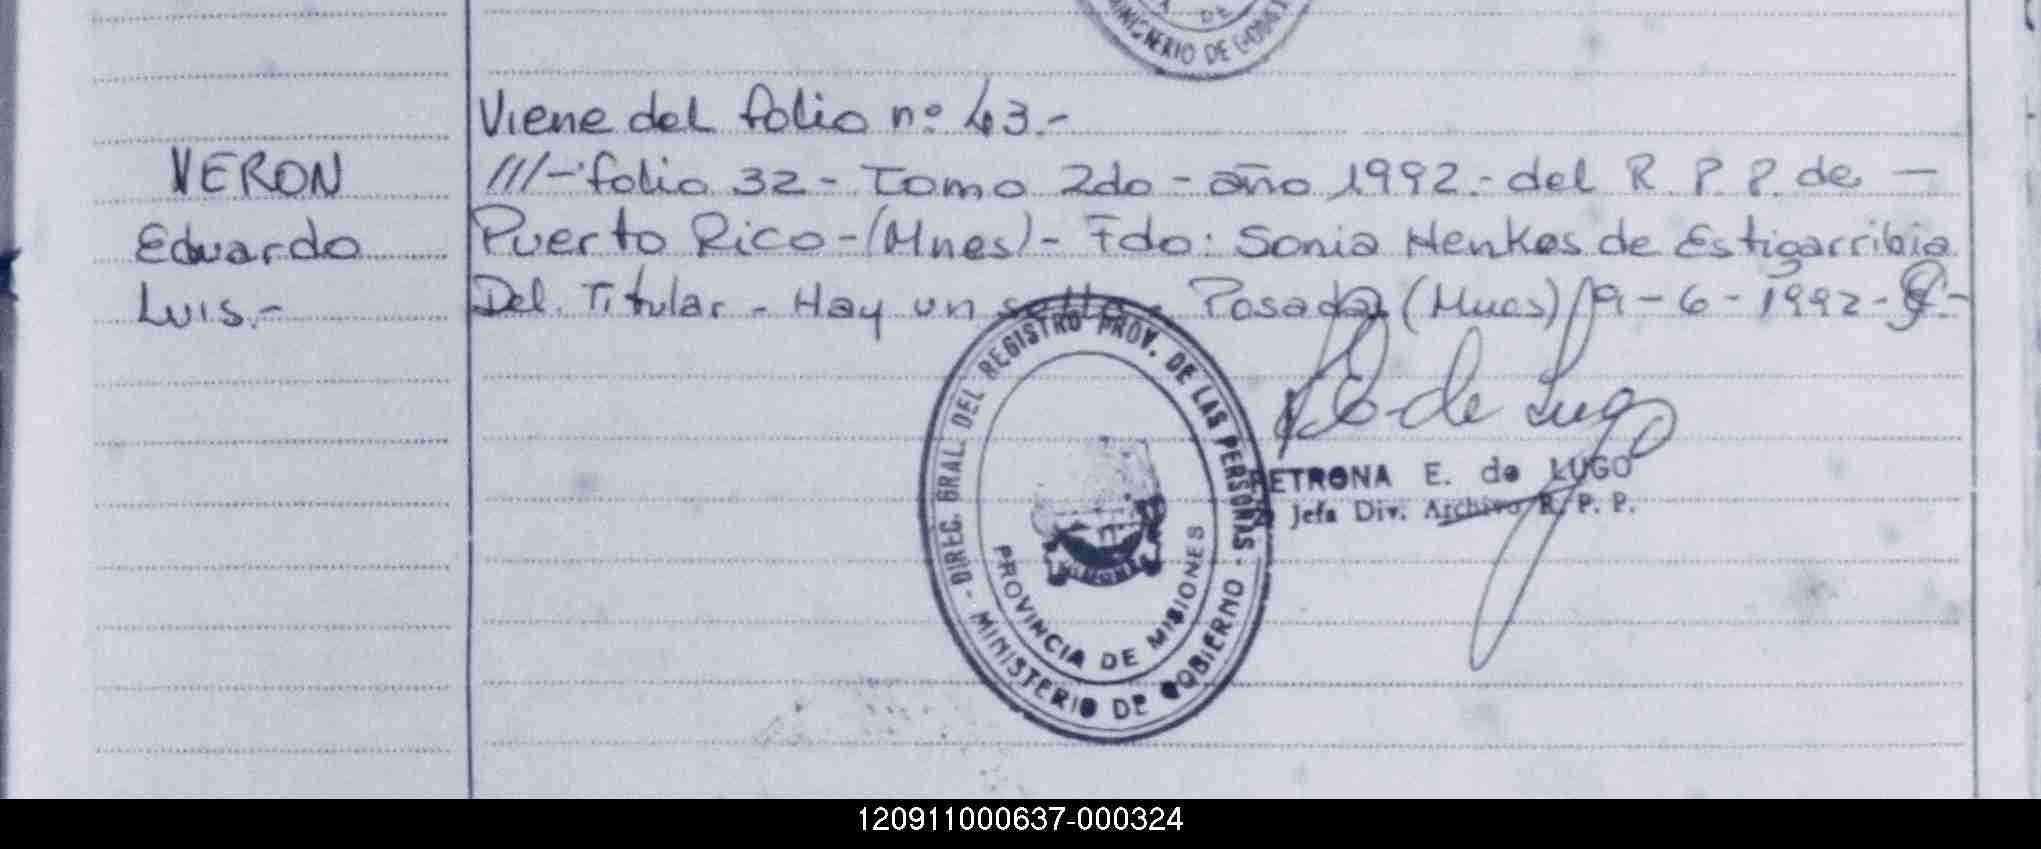 MINISTERIO DE GOBIERNO
Viene del folio nº 43.-
VERON
Eduardo
Luis.-
///-folio 32 - Tomo 2do - año 1992.- del R. P. P. de -
Puerto Rico-(Mnes)- Fdo: Sonia Henkes de Estigarribia
Del. Titular - Hay un sello - Posadas (Mnes) 9-6-1992-
- DIREC. GRAL. DEL REGISTRO PROV. DE LAS PERSONAS -
MINISTERIO DE GOBIERNO
PROVINCIA DE MISIONES
de Lugo
PETRONA E. de LUGO
Jefa Div. Archivo R. P. P.
120911000637-000324